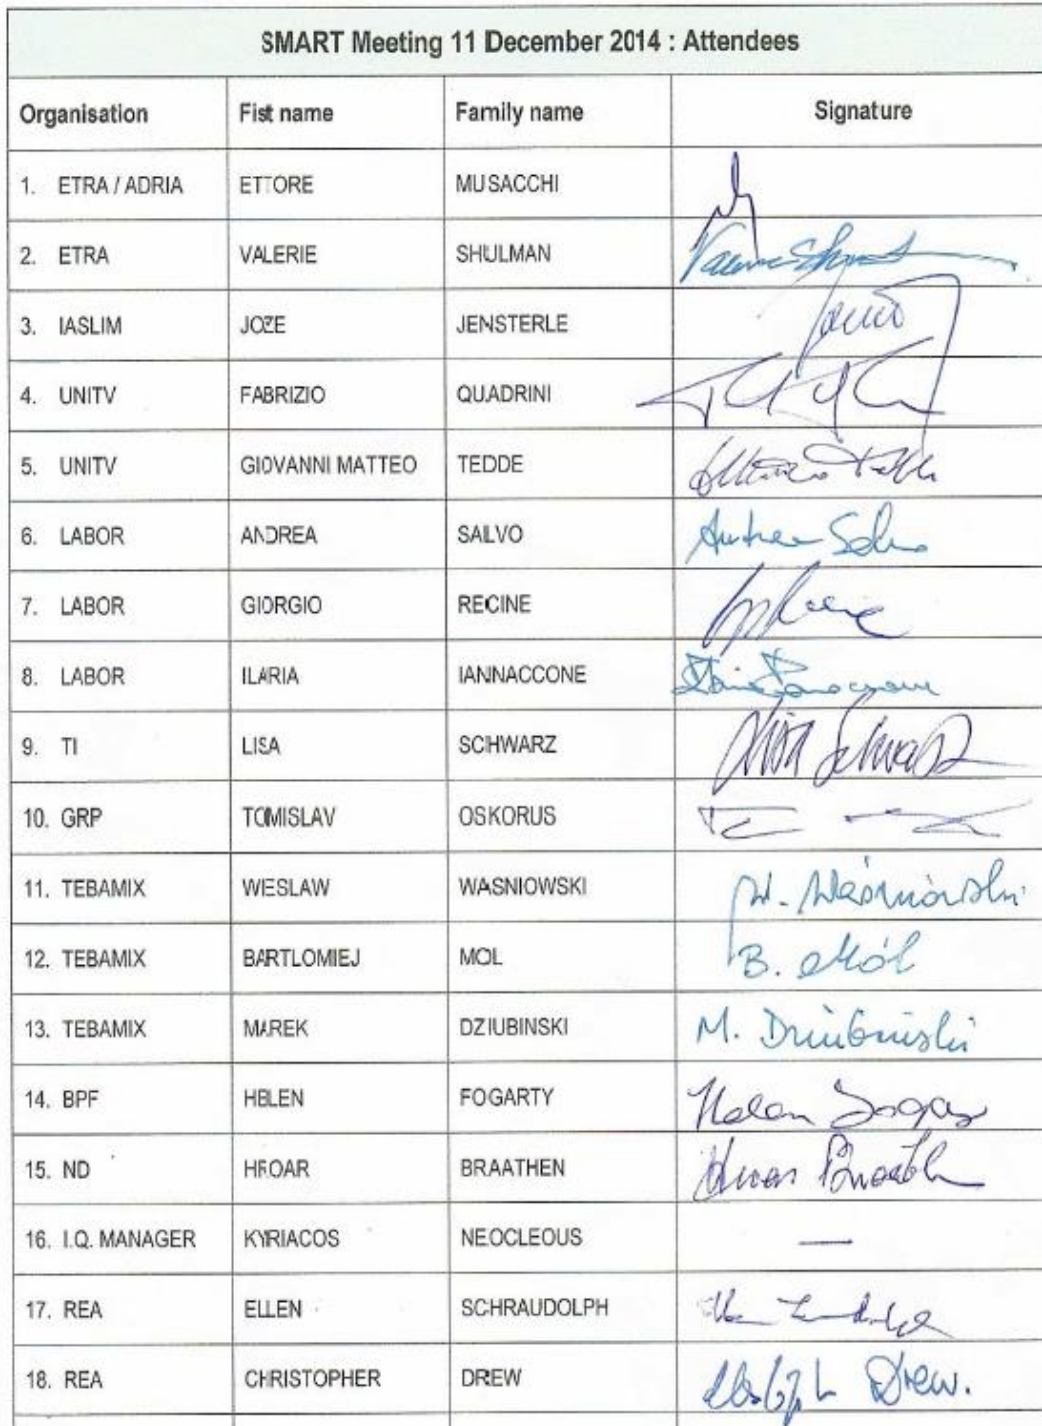 SMART Meeting 11 December 2014 : Attendees
Organisation Fist name Family name Signature
1. ETRA / ADRIA ETTORE MUSACCHI
2. ETRA VALERIE SHULMAN
3. IASLIM JOZE JENSTERLE
4. UNITV FABRIZIO QUADRINI
5. UNITV GIOVANNI MATTEO TEDDE
6. LABOR ANDREA SALVO Andrea Salvo
7. LABOR GIORGIO RECINE
8. LABOR ILARIA IANNACCONE
9. TI LISA SCHWARZ Lisa Schwarz
10. GRP TOMISLAV OSKORUS
11. TEBAMIX WIESLAW WASNIOWSKI W. Waśniowski
12. TEBAMIX BARTLOMIEJ MOL B. Mól
13. TEBAMIX MAREK DZIUBINSKI M. Dziubiński
14. BPF HELEN FOGARTY Helen
15. ND HROAR BRAATHEN
16. I.Q. MANAGER KYRIACOS NEOCLEOUS —
17. REA ELLEN SCHRAUDOLPH
18. REA CHRISTOPHER DREW Drew.